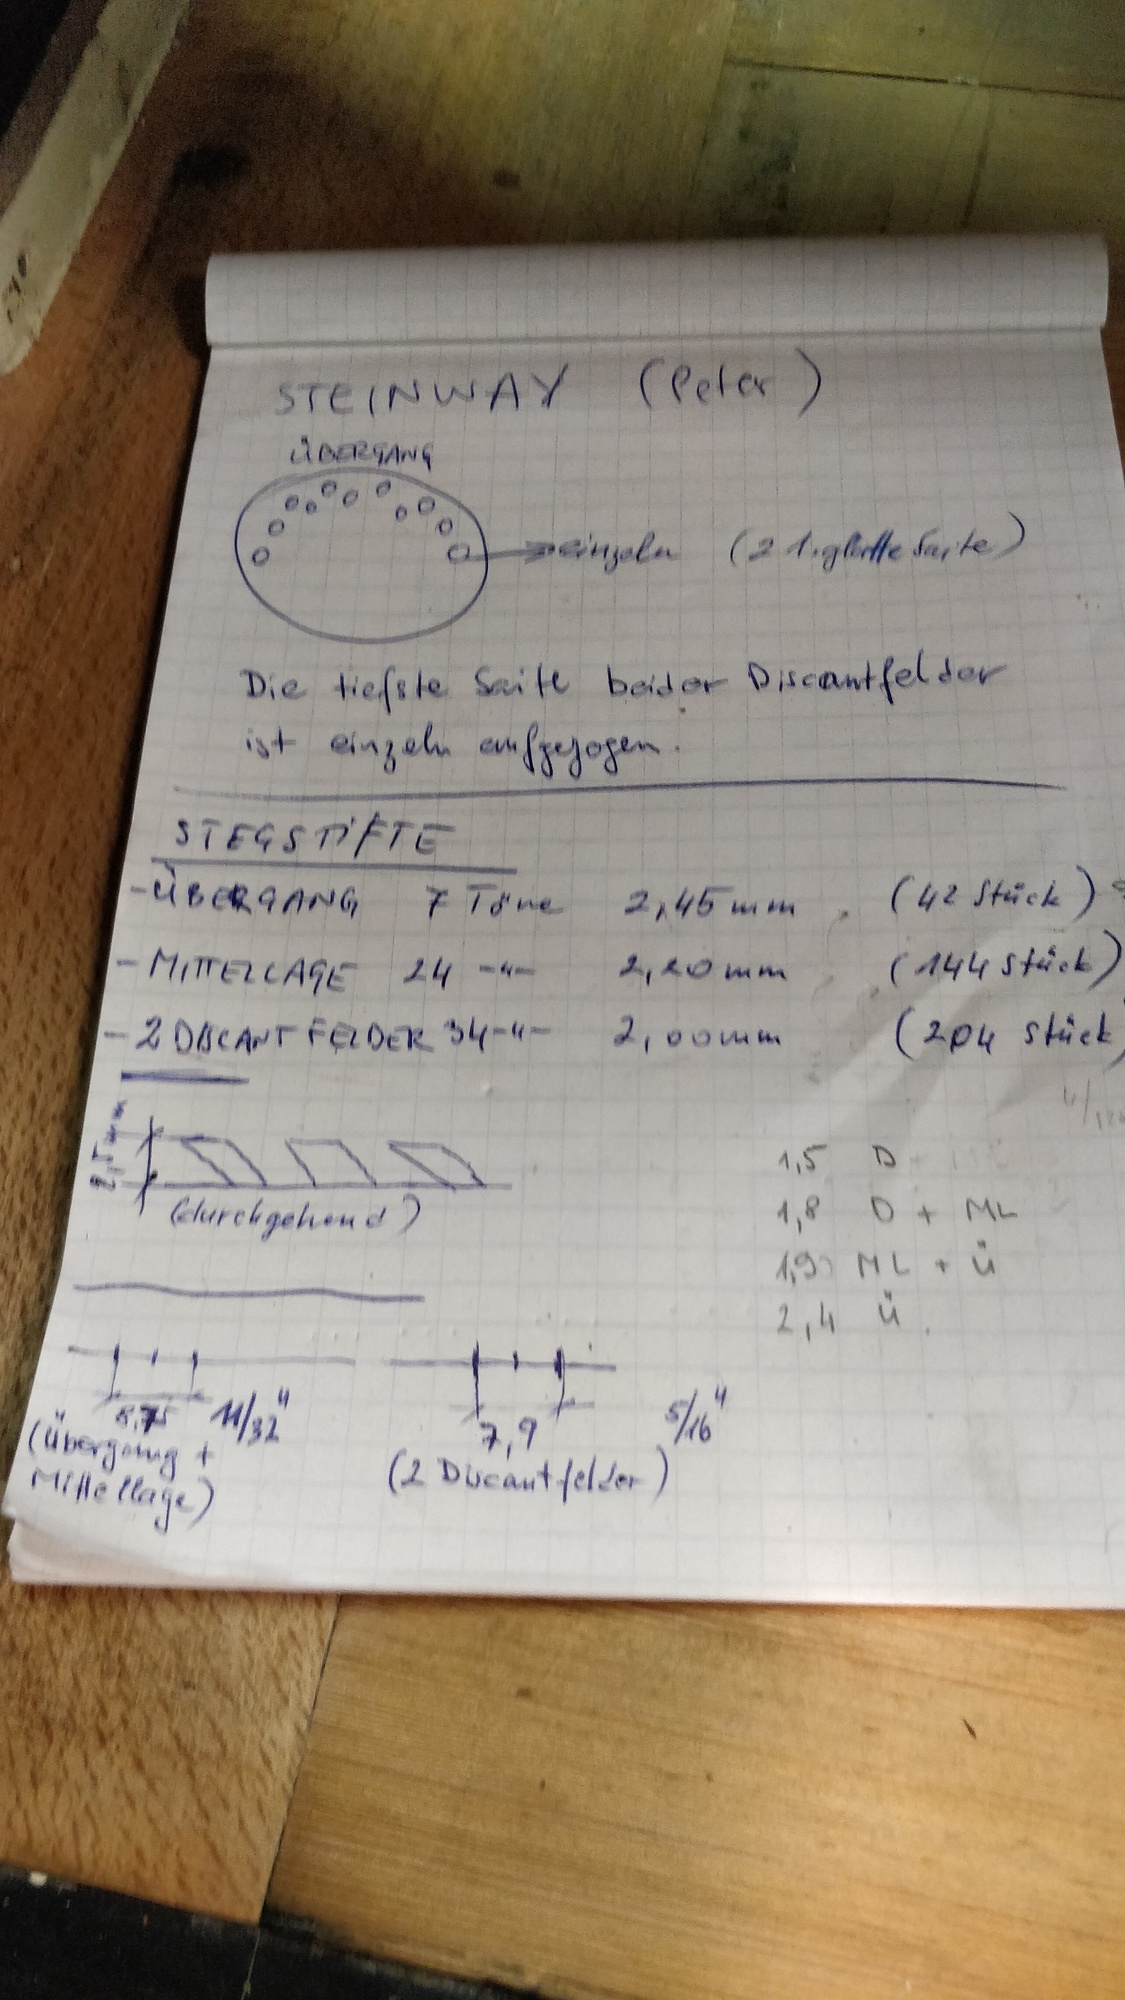 STEINWAY (Peter)
ÜBERGANG
einzeln (2 1. glatte Saite)
Die tiefste Saite beider Discantfelder
ist einzeln aufgezogen.
STEGSTIFTE
- ÜBERGANG 7 Töne 2,45mm (42 Stück)
- MITTELLAGE 24 -"- 2,20mm (144 Stück)
- 2 DISCANTFELDER 34 -"- 2,00mm (204 Stück
2,5mm
(durchgehend)
1,5 D
1,8 D + ML
1,9 ML + Ü
2,4 Ü.
8,75 11/32"
(Übergang +
Mittellage)
7,9 5/16"
(2 Discantfelder)